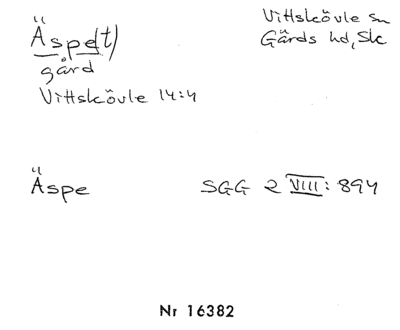 Äspe(t)
Vittskövle sn
gård
Gärds hd, Sk
Vittskövle 14:4
Äspe SGG 2 VIII: 894
Nr 16382